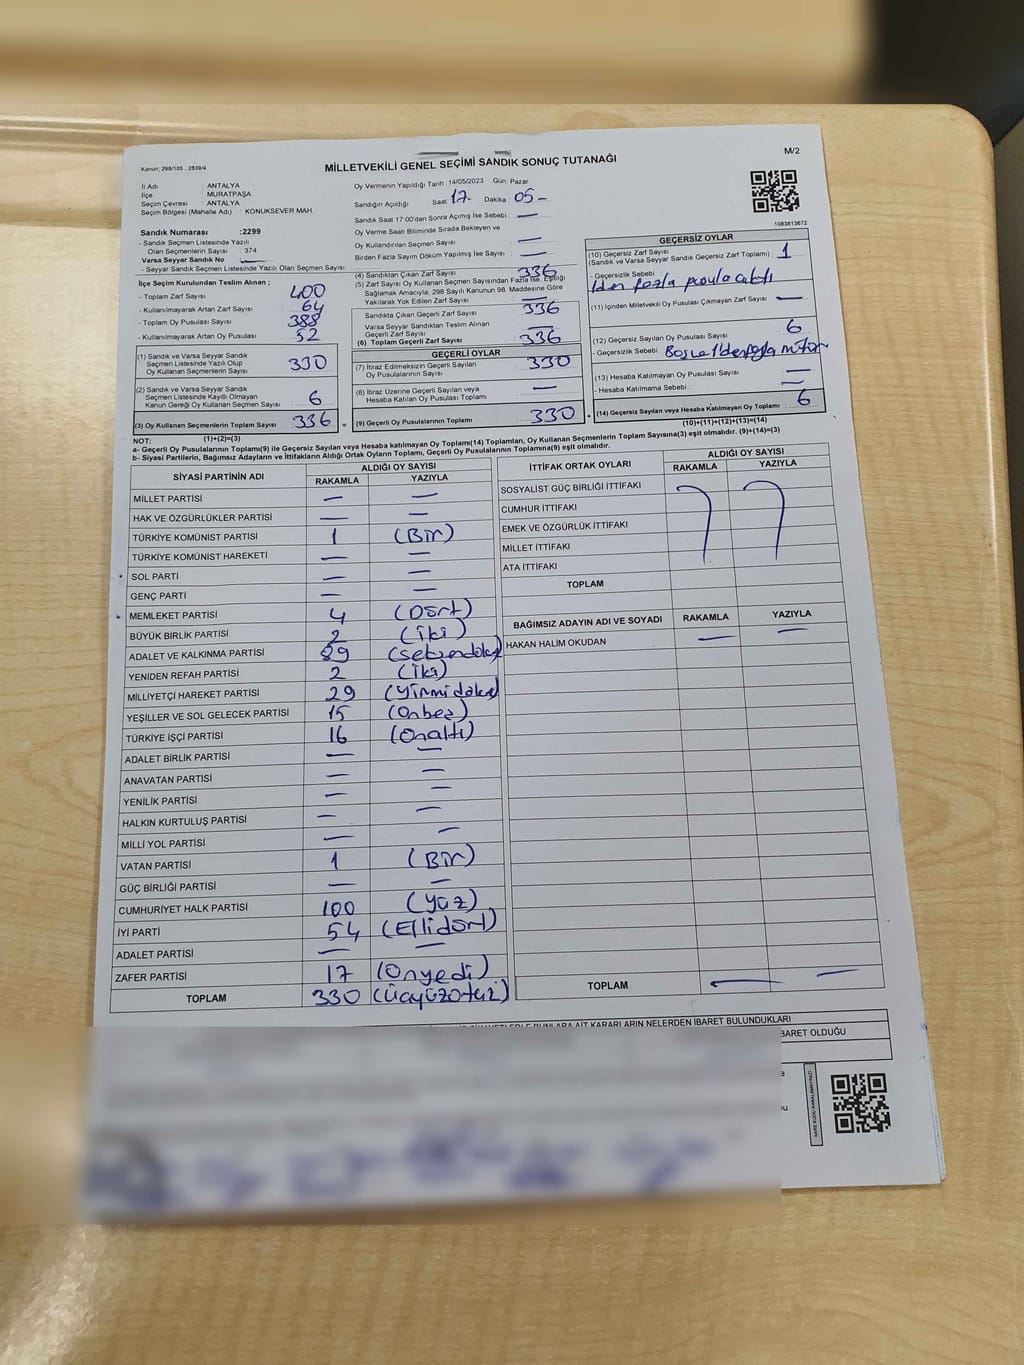 Kanun; 298/105 , 2839/4
MİLLETVEKİLİ GENEL SEÇİMİ SANDIK SONUÇ TUTANAĞI
M/2
İl Adı : ANTALYA
İlçe : MURATPAŞA
Seçim Çevresi : ANTALYA
Seçim Bölgesi (Mahalle Adı) : KONUKSEVER MAH
Sandık Numarası :2299
- Sandık Seçmen Listesinde Yazılı
Olan Seçmenlerin Sayısı : 374
Varsa Seyyar Sandık No —
- Seyyar Sandık Seçmen Listesinde Yazılı Olan Seçmen Sayısı:
İlçe Seçim Kurulundan Teslim Alınan ;
- Toplam Zarf Sayısı 400
- Kullanılmayarak Artan Zarf Sayısı 64
- Toplam Oy Pusulası Sayısı 388
- Kullanılmayarak Artan Oy Pusulası 52
(1) Sandık ve Varsa Seyyar Sandık
Seçmen Listesinde Yazılı Olup
Oy Kullanan Seçmenlerin Sayısı 330
(2) Sandık ve Varsa Seyyar Sandık
Seçmen Listesinde Kayıtlı Olmayan
Kanun Gereği Oy Kullanan Seçmen Sayısı 6
(3) Oy Kullanan Seçmenlerin Toplam Sayısı 336
(1)+(2)=(3)
Oy Vermenin Yapıldığı Tarih :14/05/2023 Gün: Pazar
Sandığın Açıldığı Saat 17- Dakika 05-
Sandık Saat 17:00'den Sonra Açımış İse Sebebi : —
Oy Verme Saati Bitiminde Sırada Bekleyen ve
Oy Kullandırılan Seçmen Sayısı : —
Birden Fazla Sayım Döküm Yapılmış İse Sayısı : —
(4) Sandıktan Çıkan Zarf Sayısı 336
(5) Zarf Sayısı Oy Kullanan Seçmen Sayısından Fazla İse, Eşitliği
Sağlamak Amacıyla; 298 Sayılı Kanunun 98. Maddesine Göre
Yakılarak Yok Edilen Zarf Sayısı : —
Sandıkta Çıkan Geçerli Zarf Sayısı 336
Varsa Seyyar Sandıktan Teslim Alınan
Geçerli Zarf Sayısı —
(6) Toplam Geçerli Zarf Sayısı 336
GEÇERLİ OYLAR
(7) İtiraz Edilmeksizin Geçerli Sayılan
Oy Pusulalarının Sayısı 330
(8) İtiraz Üzerine Geçerli Sayılan veya
Hesaba Katılan Oy Pusulası Toplamı —
(9) Geçerli Oy Pusulalarının Toplamı 330
1083813672
GEÇERSİZ OYLAR
(10) Geçersiz Zarf Sayısı
(Sandık ve Varsa Seyyar Sandık Geçersiz Zarf Toplamı) : 1
- Geçersizlik Sebebi
1den fazla pusula çıktı
(11) İçinden Milletvekili Oy Pusulası Çıkmayan Zarf Sayısı : —
(12) Geçersiz Sayılan Oy Pusulası Sayısı : 6
- Geçersizlik Sebebi Boş ve 1den fazla mühür
(13) Hesaba Katılmayan Oy Pusulası Sayısı : —
- Hesaba Katılmama Sebebi : —
(14) Geçersiz Sayılan veya Hesaba Katılmayan Oy Toplamı 6
(10)+(11)+(12)+(13)=(14)
NOT:
a- Geçerli Oy Pusulalarının Toplamı(9) ile Geçersiz Sayılan veya Hesaba katılmayan Oy Toplamı(14) Toplamları, Oy Kullanan Seçmenlerin Toplam Sayısına(3) eşit olmalıdır. (9)+(14)=(3)
b- Siyasi Partilerin, Bağımsız Adayların ve İttifakların Aldığı Ortak Oyların Toplamı, Geçerli Oy Pusulalarının Toplamına(9) eşit olmalıdır.
SİYASİ PARTİNİN ADI ALDIĞI OY SAYISI
RAKAMLA YAZIYLA
MİLLET PARTİSİ — —
HAK VE ÖZGÜRLÜKLER PARTİSİ — —
TÜRKİYE KOMÜNİST PARTİSİ 1 (Bir)
TÜRKİYE KOMÜNİST HAREKETİ — —
SOL PARTİ — —
GENÇ PARTİ — —
MEMLEKET PARTİSİ 4 (Dört)
BÜYÜK BİRLİK PARTİSİ 2 (iki)
ADALET VE KALKINMA PARTİSİ 89 (seksendokuz)
YENİDEN REFAH PARTİSİ 2 (iki)
MİLLİYETÇİ HAREKET PARTİSİ 29 (yirmidokuz)
YEŞİLLER VE SOL GELECEK PARTİSİ 15 (onbeş)
TÜRKİYE İŞÇİ PARTİSİ 16 (onaltı)
ADALET BİRLİK PARTİSİ — —
ANAVATAN PARTİSİ — —
YENİLİK PARTİSİ — —
HALKIN KURTULUŞ PARTİSİ — —
MİLLİ YOL PARTİSİ — —
VATAN PARTİSİ 1 (Bir)
GÜÇ BİRLİĞİ PARTİSİ — —
CUMHURİYET HALK PARTİSİ 100 (yüz)
İYİ PARTİ 54 (Ellidört)
ADALET PARTİSİ — —
ZAFER PARTİSİ 17 (onyedi)
TOPLAM 330 (üçyüzotuz)
İTTİFAK ORTAK OYLARI ALDIĞI OY SAYISI
RAKAMLA YAZIYLA
SOSYALİST GÜÇ BİRLİĞİ İTTİFAKI
CUMHUR İTTİFAKI
EMEK VE ÖZGÜRLÜK İTTİFAKI
MİLLET İTTİFAKI
ATA İTTİFAKI
TOPLAM
BAĞIMSIZ ADAYIN ADI VE SOYADI RAKAMLA YAZIYLA
HAKAN HALİM OKUDAN — —
TOPLAM — —
BUNLARA AİT KARARLARIN NELERDEN İBARET BULUNDUKLARI
BARET OLDUĞU